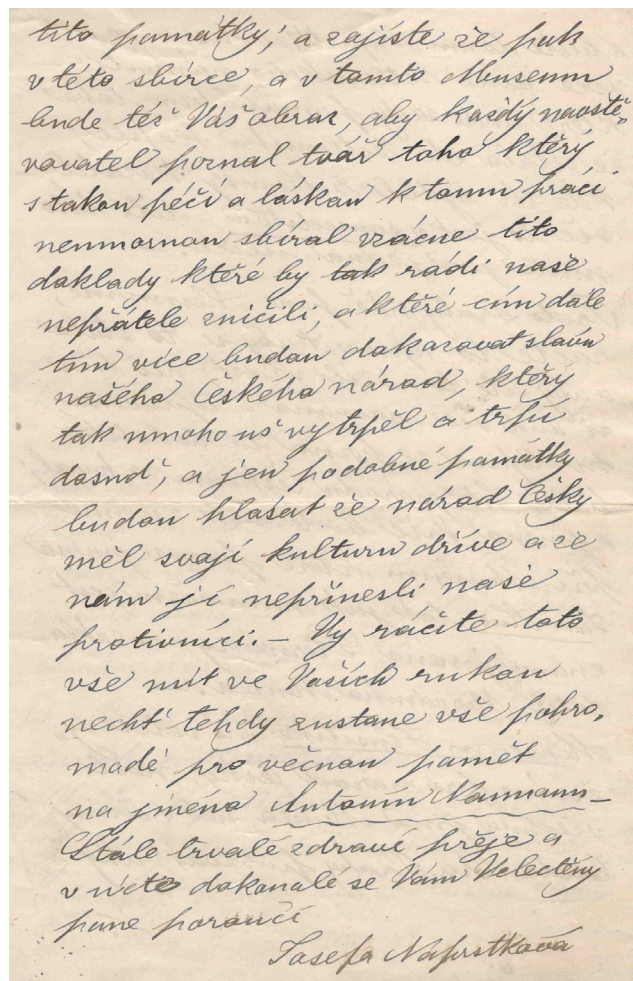 tito památky; a zajíste že pak
v této sbírce, a v tomto Museum
bude též Váš obraz, aby každý navště-
vovatel poznal tvář toho který
s takou péčí a láskou k tomu prácí
neunornou sbíral vzácne tito
doklady ktěré by tak rádi naše
nepřátele zničili, a ktěré cím dále
tím více budou dokazovat slávu
našého Českého národ, ktěrý
tak mnoho už vytrpěl a trpí
dosud, a jen podobné památky
budou hlásat že národ Česky
měl svojí kulturu dříve a že
nám jí nepřinesli naše
protivníci. — Vy ráčíte toto
vše mít ve Vaších rukou
nechť tehdy zustane vše pohro-
madě pro věčnou pamět
na jméno Antonín Naumann —
Stále trvalé zdraví přeje a
v úctě dokonalé se Vám Velectěny
pane poroučí
Josefa Náprstková